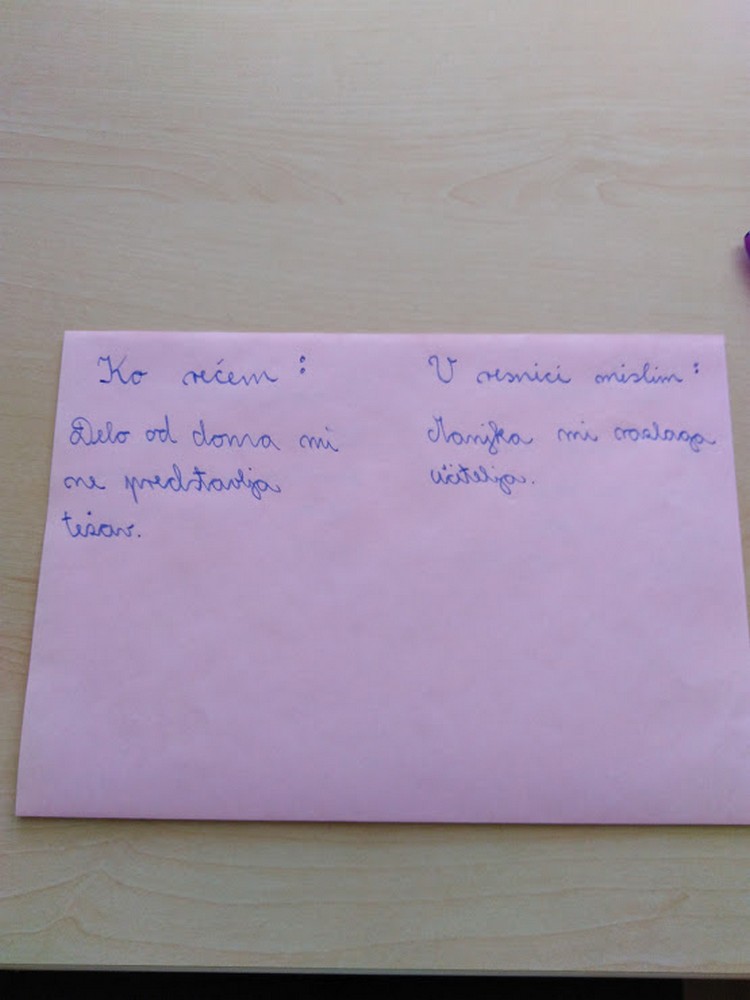 Ko rečem :
Delo od doma mi
ne predstavlja
težav.
V resnici mislim :
Manjka mi razlaga
učitelja.